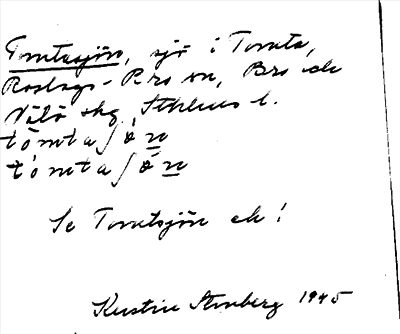 Tomtasjön, sjö i Tomta,
Roslags-Bro sn, Bro och
Vätö skg, Sthlms l.
tò̀mtaʃö́n
tómtaʃö̀n
Se Tomtsjön ek!
Kerstin Stenberg 1945